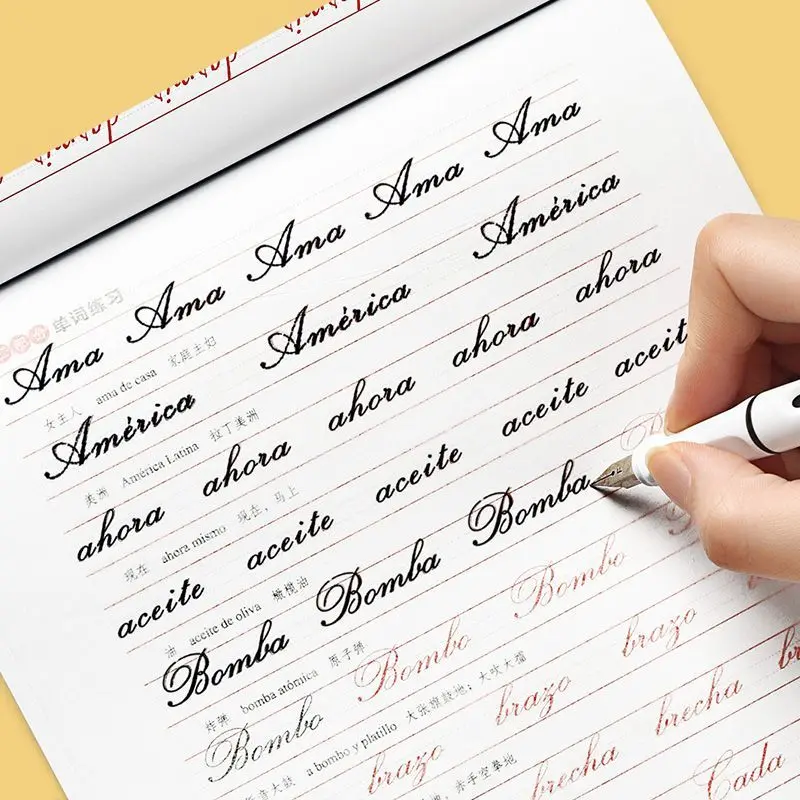 单词练习
Ama Ama Ama Ama Ama
女主人 ama de casa 家庭主妇
América América América
美洲 América Latina 拉丁美洲
ahora ahora ahora ahora ahora
现在 ahora mismo 现在，马上
aceite aceite aceite aceite aceit
油 aceite de oliva 橄榄油
Bomba Bomba Bomba
炸弹 bomba atómica 原子弹
Bombo Bombo Bombo
音大鼓 a bombo y platillo 大张旗鼓地；大吹大擂
brazo brazo brazo
赤手空拳地
brecha brecha
Cada